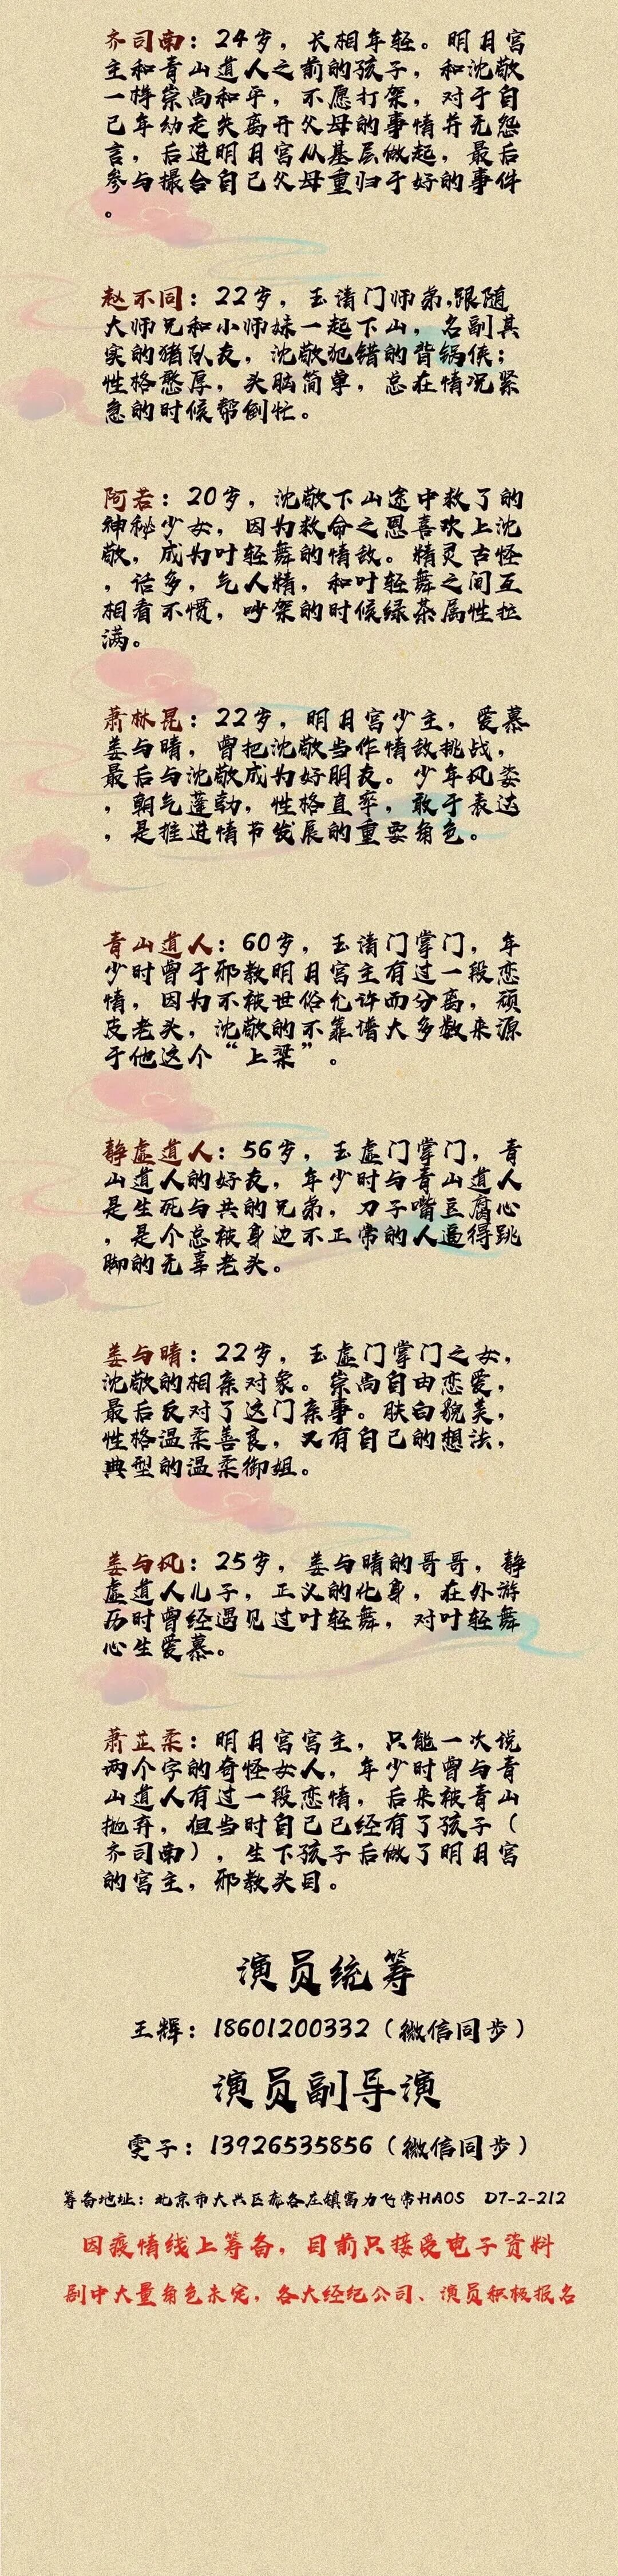 齐司南：24岁，长相年轻。明月宫
主和青山道人之前的孩子，和沈敬
一样崇尚和平，不愿打架，对于自
己年幼走失离开父母的事情并无怨
言，后进明月宫从基层做起，最后
参与撮合自己父母重归于好的事件
。
赵不同：22岁，玉清门师弟,跟随
大师兄和小师妹一起下山，名副其
实的猪队友，沈敬犯错的背锅侠；
性格憨厚，头脑简单，总在情况紧
急的时候帮倒忙。
阿若：20岁，沈敬下山途中救了的
神秘少女，因为救命之恩喜欢上沈
敬，成为叶轻舞的情敌。精灵古怪
，话多，气人精，和叶轻舞之间互
相看不惯，吵架的时候绿茶属性拉
满。
萧林昆：22岁，明月宫少主，爱慕
姜与晴，曾把沈敬当作情敌挑战，
最后与沈敬成为好朋友。少年风姿
，朝气蓬勃，性格直率，敢于表达
，是推进情节发展的重要角色。
青山道人：60岁，玉清门掌门，年
少时曾于邪教明月宫主有过一段恋
情，因为不被世俗允许而分离，顽
皮老头，沈敬的不靠谱大多数来源
于他这个“上梁”。
静虚道人：56岁，玉虚门掌门，青
山道人的好友，年少时与青山道人
是生死与共的兄弟，刀子嘴豆腐心
，是个总被身边不正常的人逼得跳
脚的无辜老头。
姜与晴：22岁，玉虚门掌门之女，
沈敬的相亲对象。崇尚自由恋爱，
最后反对了这门亲事。肤白貌美，
性格温柔善良，又有自己的想法，
典型的温柔御姐。
姜与风：25岁，姜与晴的哥哥，静
虚道人儿子，正义的化身，在外游
历时曾经遇见过叶轻舞，对叶轻舞
心生爱慕。
萧芷柔：明月宫宫主，只能一次说
两个字的奇怪女人，年少时曾与青
山道人有过一段恋情，后来被青山
抛弃，但当时自己已经有了孩子（
齐司南），生下孩子后做了明月宫
的宫主，邪教头目。
演员统筹
王辉：18601200332（微信同步）
演员副导演
雯子：13926535856（微信同步）
筹备地址：北京市大兴区庞各庄镇富力飞常HAOS D7-2-212
因疫情线上筹备，目前只接受电子资料
剧中大量角色未定，各大经纪公司、演员积极报名